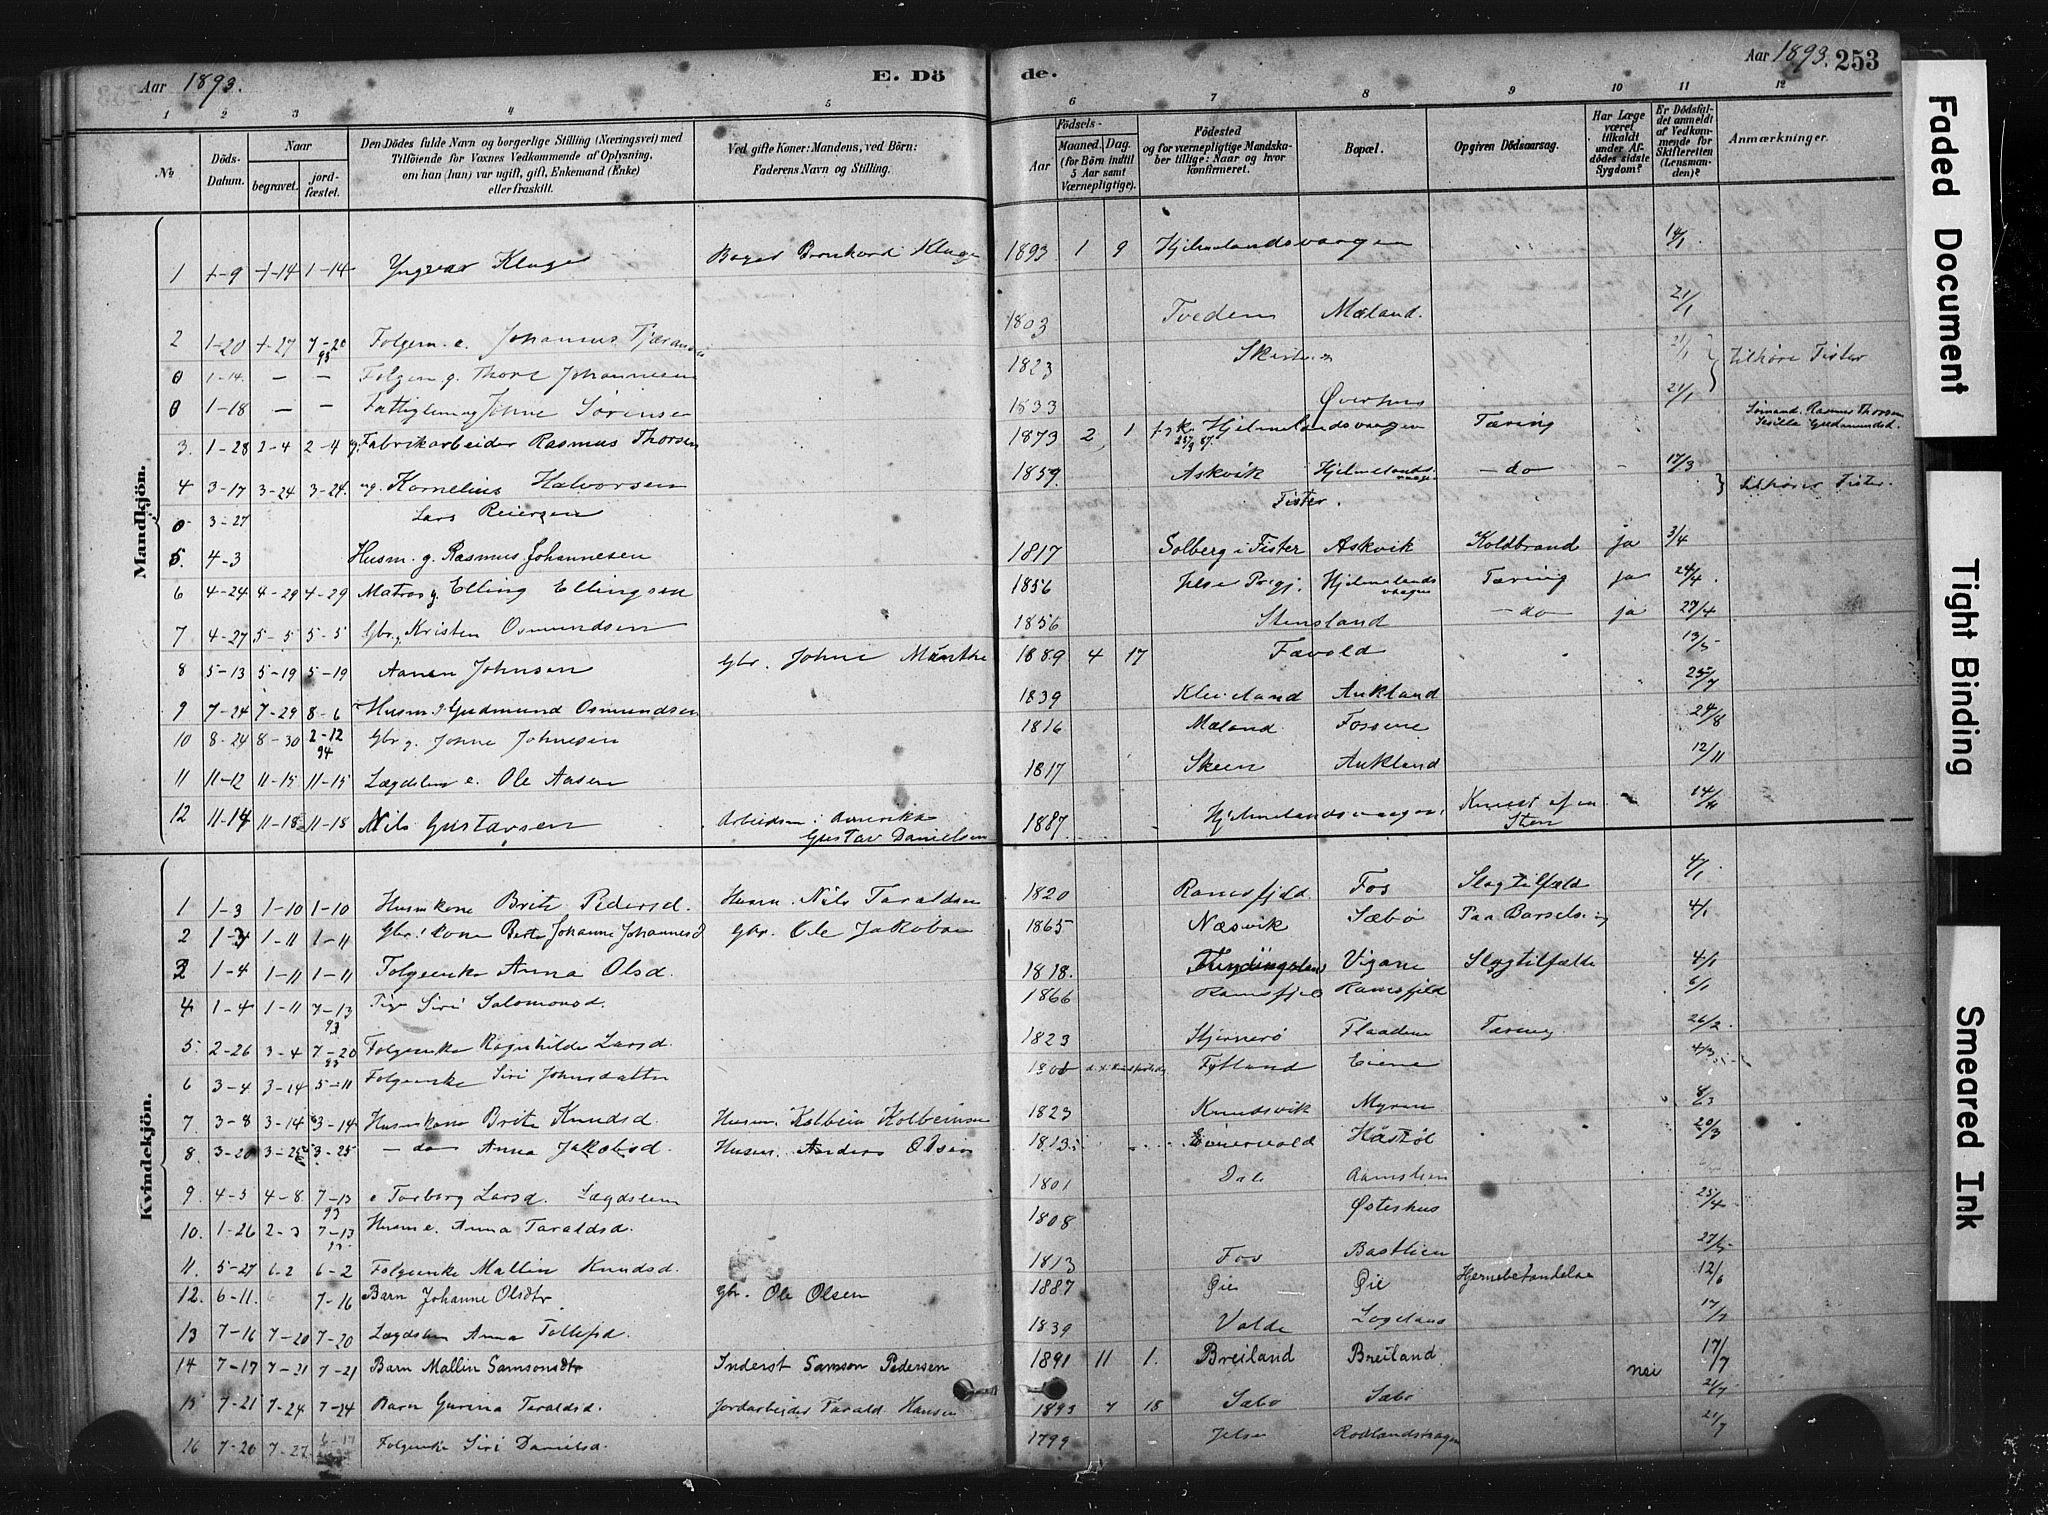 Aar 1893.
E. Dö
de.
Aar 1893. 253
1 2 3 4 5 6 7 8 9 10 11 12
No
Döds-Datum.
Naar
begravet.
jordfæstet.
Den Dödes fulde Navn og borgerlige Stilling (Næringsvei) med
Tilföiende for Voxnes Vedkommende af Oplysning,
om han (hun) var ugift, gift, Enkemand (Enke)
eller fraskilt.
Ved gifte Koner: Mandens, ved Börn:
Faderens Navn og Stilling.
Födsels-
Aar
Maaned. Dag.
(for Börn indtil
5 Aar samt
Værnepligtige).
Födested
og for værnepligtige Mandskaber tillige: Naar og hvor
konfirmeret.
Bopæl.
Opgiven Dödsaarsag.
Har Læge
været
tilkaldt
under Afdödes sidste
Sygdom?
Er Dödsfaldet anmeldt
af Vedkommende for
Skifteretten
(Lensmanden)?
Anmærkninger.
Mandkjön.
1 1-9 1-14 1-14 Yngvar Kluge Bager Bernhard Kluge 1893 1 9 Hjelmelandsvaagen 14/1
2 1-20 1-27 7-20 93 Folgem. e. Johannes 1803 Tveden Mæland. 21/1
0 1-14. — — Folgem g. Thore Johannesen 1823 21/1 } tilhöre Fister
0 1-18 — — Johne Sörensen 1833 Øverhus 21/1
3. 1-28 2-4 2-4 g. Fabrikarbeider Rasmus Thorsen 1873 2 1 Hjelmelandsvaagen Tæring Rasmus Thorsen
4 3-17 3-24 3-24. ug. Kornelius Halvorsen 1859. Askvik Hjelmelandsvaagen —do — 17/3
0 3-27 Lars Reiersen Fister. } tilhörer Fister.
5. 4-3 Husm. g. Rasmus Johannesen 1817 Solberg i Fister Askvik Koldbrand ja 3/4
6 4-24 4-29 4-29 Matros g. Elling Ellingsen 1856 Jelse Prgj. Hjelmelandsvaagen Tæring ja 24/4.
7 4-27 5-5 5-5 Gbr. g. Kristen Osmundsen 1856 Stensland —do ja 27/4
8 5-13 5-19 5-19 Aanen Johnsen Gbr. Johne 1889 4 17 Fævold 13/5
9 7-24 7-29 8-6 Husm. g. Gudmund Osmundsen 1839 Kleiveland Aukland 25/7
10 8-24 8-30 2-12 94 Gbr g. Johne Johnesen 1816 Mæland Fossene 24/8
11 11-12 11-15 11-15 Lægdslem e. Ole Aasen 1817 Skeen Aukland 12/11
12 11-14 11-18 11-18 Nils Gustavsen Arbeidsm. i Amerika Gustav Danielsen 1887 Hjelmelandsvaagen Knust af en Sten 14/11
Kvindekjön.
1 1-3 1-10 1-10 Huskone Brite Pedersd. Husm. Nils Taraldsen 1820 Ramsfjeld Fos Slagtilfæld 4/1
2 1-3 1-11 1-11 Gbr.kone Berte Johanne Johannesd Gbr. Ole Jakobsen 1865 Næsvik Sæbö Paa Barselseng 4/1
3 1-4 1-11 1-11 Folgeenke Anna Olsd. 1818. Vigane Slagtilfælde 4/1
4 1-4 1-11 7-13 93 Siri Salomonsd. 1866 Ramsfjeld Ramsfjeld 6/1
5. 2-26 3-4 7-20 93 Folgeenke Ragnhilde Larsd. 1823 Hjernerö Flaadene Tæring 26/2.
6 3-4 3-14 5-11 Folgeenke Siri Johnsdatter Fytland Eiene 4/3
7. 3-8 3-14 3-14 Huskone Brite Knudsd. Husm. Kolbein Kolbeinsen 1823 Knudsvik Myren 8/3
8. 3-20 3-25 3-25 —do Anna Jakobsd. Husm. Anders Olsen 1813 Håstöl 20/3
9. 4-3 4-8 7-13 93 e Torborg Larsd. Lægdslem 1801 Dale
10. 1-26 2-3 7-13 93 Husm e. Anna Taraldsd. 1808 Østeshus 25/4
11. 5-27 6-2 6-2 Folgeenke Mallin Knudsd. 1813 Fos Bastlien 27/5
12. 6-11. 7-16 Barn Johanne Olsdtr Gbr. Ole Olsen 1887 Øie Øie Hjernebetændelse 12/6
13 7-16 7-20 7-20 Lægdslem Anna Tollefsd. 1839 Valde 17/7
14 7-17 7-21 7-21 Barn Mallin Samsonsdtr Inderst Samson Pedersen 1891 11 1. Breiland Breiland nei 17/7
15 7-21 7-24 7-24 Barn Gurina Taraldsd. Jordarbeider Tarald Hansen 1893 4 18 Sæbö Sæbö 21/7
16 7-20 7-27 Folgeenke Siri Danielsd. 1799 Jelse 21/7
Faded Document
Tight Binding
Smeared Ink